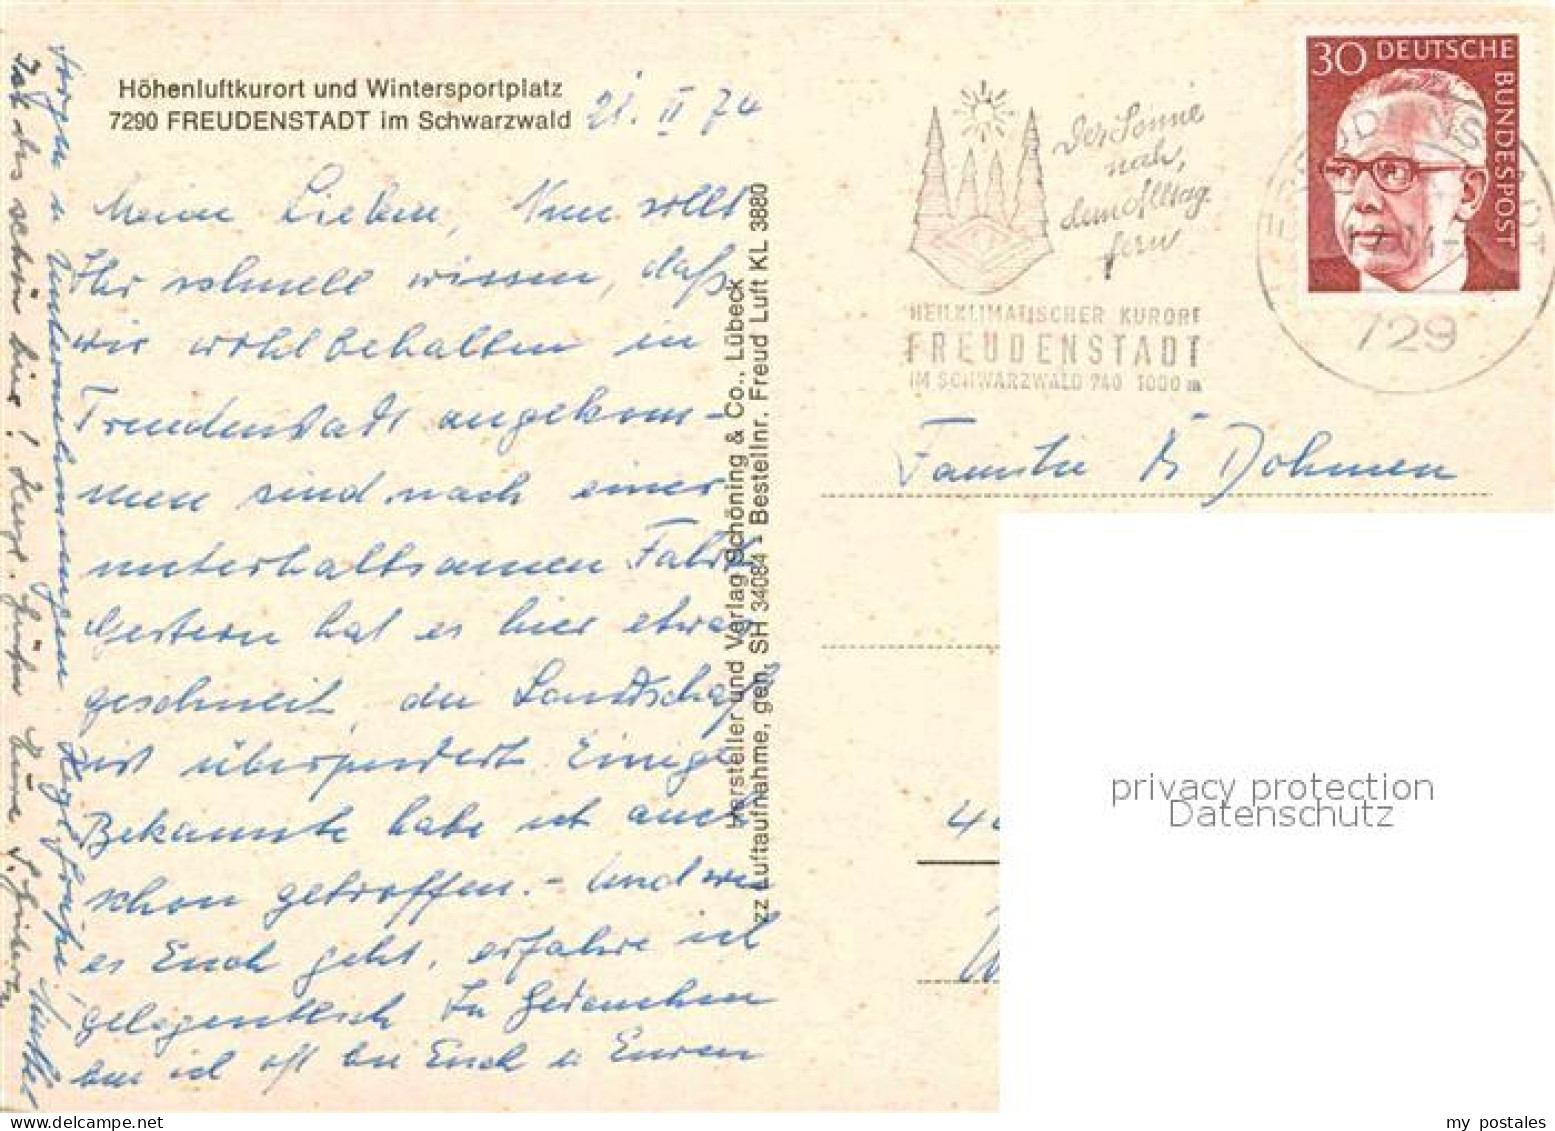 Höhenluftkurort und Wintersportplatz
7290 FREUDENSTADT im Schwarzwald
21. II 74
Meine Lieben, Nun sollt
Ihr schnell wissen, daß
wir wohlbehalten in
Freudenstadt angekom-
men sind nach einer
unterhaltsamen Fahrt
Gestern hat es hier etwas
geschneit, die Landschaft
ist überpudert. Einige
Bekannte habe ich auch
schon getroffen. - Und wie
es Euch geht, erfahre ich
gelegentlich In Gedanken
bin ich oft bei Euch u Euren
Sorgen u Unternehmungen Herzl. Grüße, Mutter
Ist das schön hier! Herzl. Grüße Eure
Hersteller und Verlag Schöning & Co., Lübeck
zz Luftaufnahme, gen. SH 34084 - Bestellnr. Freud Luft KL 3880
Der Sonne
nah,
dem Alltag
fern
HEILKLIMATISCHER KURORT
FREUDENSTADT
IM SCHWARZWALD 740 1000 m
30 DEUTSCHE
BUNDESPOST
FREUDENSTADT
729
Familie K Dohmen
privacy protection
Datenschutz
my postales